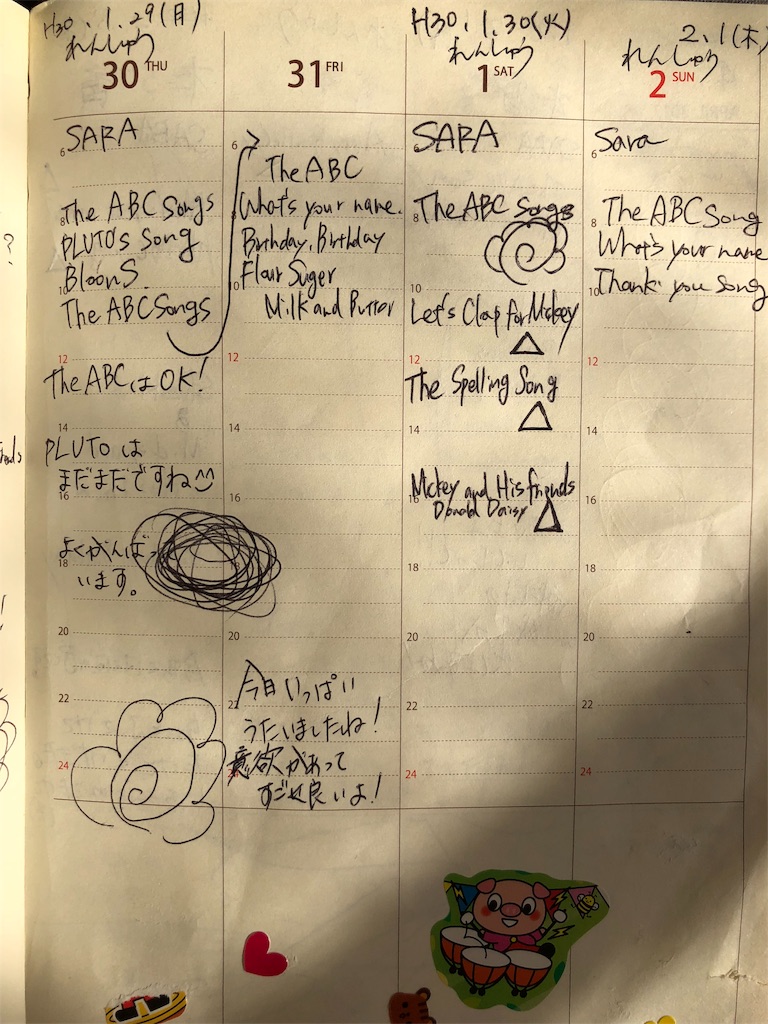 H30.1.29(月)
れんしゅう
30 THU
SARA
The ABC Songs
PLUTO's Song
BloonS.
The ABC Songs
The ABCはOK!
PLUTOは
まだまだですね
よくがんばっ
います。
6
8
10
12
14
16
18
20
22
24
31 FRI
The ABC
What's your name.
Birthday, Birthday
Flour Suger
Milk and Butter
今日いっぱい
うたいましたね!
意欲があって
すごく良いよ!
6
10
12
16
20
22
H30.1.30(火)
れんしゅう
1 SAT
SARA
The ABC Songs
Let's Clap for Mickey
The Spelling Song
Mickey and His friends
Donald Daisy
6
8
10
12
14
16
18
20
22
24
2.1(木)
れんしゅう
2 SUN
Sara
The ABC Song
What's your name
Thank you Song
6
8
10
12
14
16
18
20
22
24